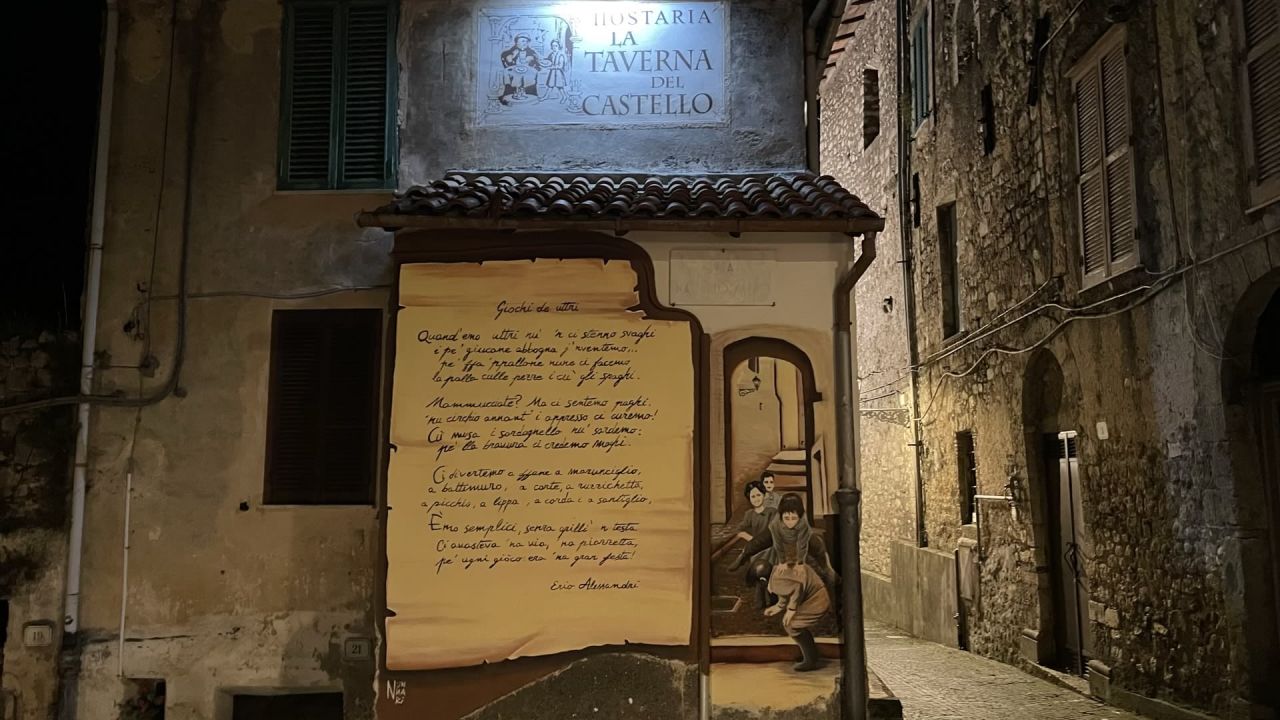 HOSTARIA
LA
TAVERNA
DEL
CASTELLO
Giochi de ultri
Quand'emo ultri nu' 'n ci stenno svaghi
e pe' giucane abbogna j'nventemo...
pe' ffa 'ppallone nure ci facemo
la palla culle pezze i cu' gli spaghi.
Mammucciate? Ma ci sentemo maghi.
'nu circhio annant' i appresso ci curemo!
Cu' musa i sardagnello nu' sardemo;
pe' lla bravura ci credemo maghi.
Ci divertemo a ffane a marunciglio,
a battimuro, a carte, a ruzzichetta,
a picchio, a lippa, a corda i a santiglio,
Èmo semplici, senza grilli 'n testa
Ci avasteva 'na via, 'na piazzetta,
pe' ugni gioco era 'na gran festa!
Erio Alessandri
19
21